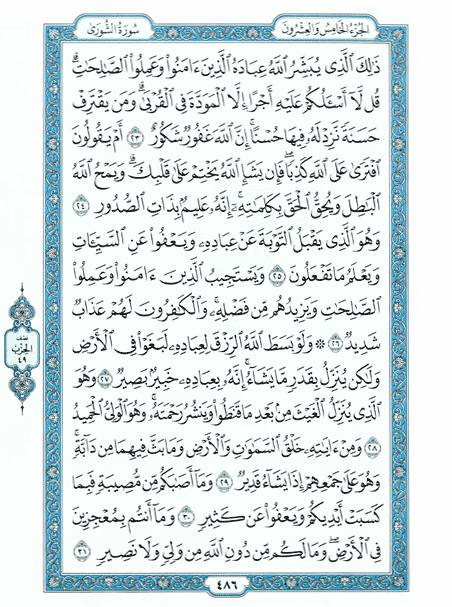 الجزء الخامس والعشرون
سورة الشورى
ذَٰلِكَ ٱلَّذِى يُبَشِّرُ ٱللَّهُ عِبَادَهُ ٱلَّذِينَ ءَامَنُوا۟ وَعَمِلُوا۟ ٱلصَّٰلِحَٰتِ ۗ
قُل لَّآ أَسْـَٔلُكُمْ عَلَيْهِ أَجْرًا إِلَّا ٱلْمَوَدَّةَ فِى ٱلْقُرْبَىٰ ۗ وَمَن يَقْتَرِفْ
حَسَنَةً نَّزِدْ لَهُۥ فِيهَا حُسْنًا ۚ إِنَّ ٱللَّهَ غَفُورٌ شَكُورٌ ٢٣ أَمْ يَقُولُونَ
ٱفْتَرَىٰ عَلَى ٱللَّهِ كَذِبًا ۖ فَإِن يَشَإِ ٱللَّهُ يَخْتِمْ عَلَىٰ قَلْبِكَ ۗ وَيَمْحُ ٱللَّهُ
ٱلْبَٰطِلَ وَيُحِقُّ ٱلْحَقَّ بِكَلِمَٰتِهِۦٓ ۚ إِنَّهُۥ عَلِيمٌۢ بِذَاتِ ٱلصُّدُورِ ٢٤
وَهُوَ ٱلَّذِى يَقْبَلُ ٱلتَّوْبَةَ عَنْ عِبَادِهِۦ وَيَعْفُوا۟ عَنِ ٱلسَّيِّـَٔاتِ
وَيَعْلَمُ مَا تَفْعَلُونَ ٢٥ وَيَسْتَجِيبُ ٱلَّذِينَ ءَامَنُوا۟ وَعَمِلُوا۟
ٱلصَّٰلِحَٰتِ وَيَزِيدُهُم مِّن فَضْلِهِۦ ۚ وَٱلْكَٰفِرُونَ لَهُمْ عَذَابٌ
شَدِيدٌ ٢٦ ۞ وَلَوْ بَسَطَ ٱللَّهُ ٱلرِّزْقَ لِعِبَادِهِۦ لَبَغَوْا۟ فِى ٱلْأَرْضِ
وَلَٰكِن يُنَزِّلُ بِقَدَرٍ مَّا يَشَآءُ ۚ إِنَّهُۥ بِعِبَادِهِۦ خَبِيرٌۢ بَصِيرٌ ٢٧ وَهُوَ
ٱلَّذِى يُنَزِّلُ ٱلْغَيْثَ مِنۢ بَعْدِ مَا قَنَطُوا۟ وَيَنشُرُ رَحْمَتَهُۥ ۚ وَهُوَ ٱلْوَلِىُّ ٱلْحَمِيدُ
٢٨ وَمِنْ ءَايَٰتِهِۦ خَلْقُ ٱلسَّمَٰوَٰتِ وَٱلْأَرْضِ وَمَا بَثَّ فِيهِمَا مِن دَآبَّةٍ ۚ
وَهُوَ عَلَىٰ جَمْعِهِمْ إِذَا يَشَآءُ قَدِيرٌ ٢٩ وَمَآ أَصَٰبَكُم مِّن مُّصِيبَةٍ فَبِمَا
كَسَبَتْ أَيْدِيكُمْ وَيَعْفُوا۟ عَن كَثِيرٍ ٣٠ وَمَآ أَنتُم بِمُعْجِزِينَ
فِى ٱلْأَرْضِ ۖ وَمَا لَكُم مِّن دُونِ ٱللَّهِ مِن وَلِىٍّ وَلَا نَصِيرٍ ٣١
نصف
الحزب
٤٩
٤٨٦